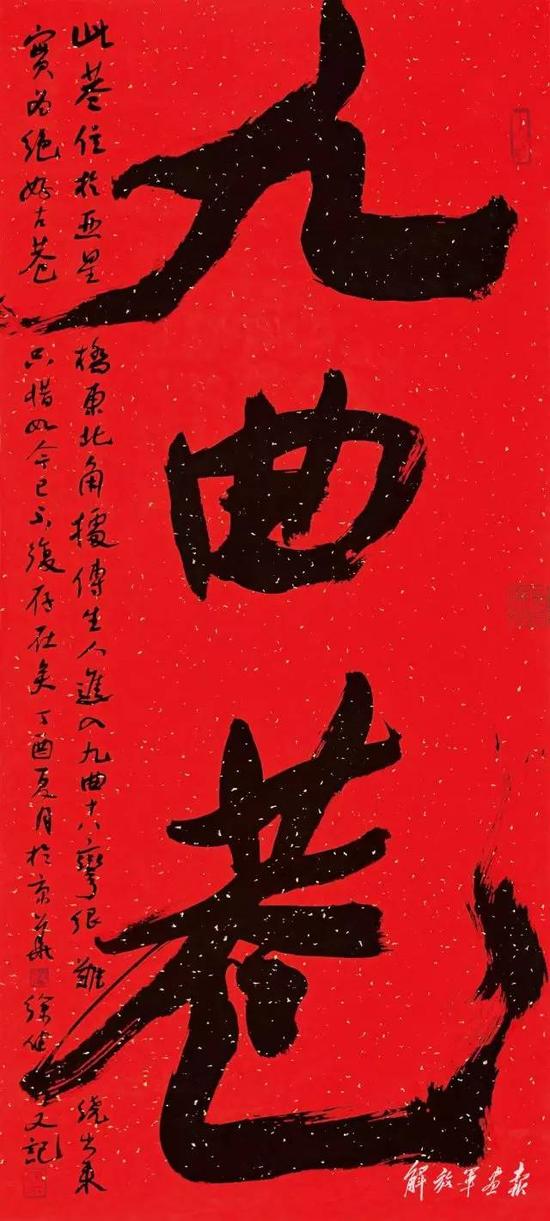 九曲巷
此巷位於亚星橋東北角據傳生人進入九曲十八彎很難繞出來
實為絕好古巷只惜如今已不復存在矣丁酉夏月於京華徐 又記
解放军画报